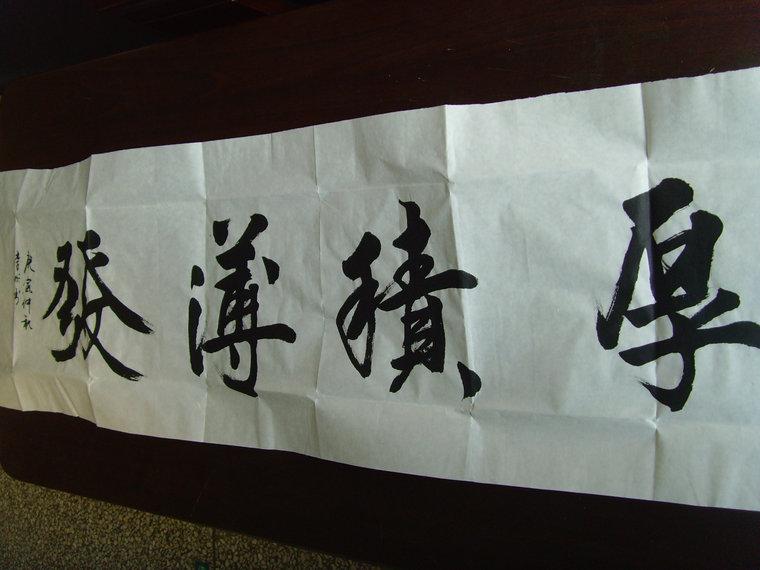 厚積薄發
庚寅仲秋